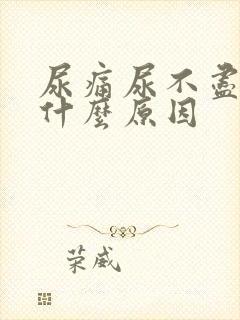 尿痛尿不盡
什麼原因
荣威